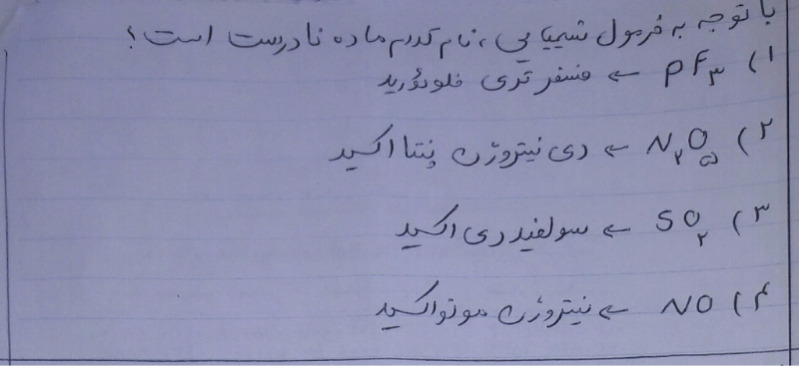 با توجه به فرمول شیمیایی، نام کدام ماده نادرست است؟
۱) PF۳ ← فسفر تری فلوئورید
۲) N۲O۵ ← دی نیتروژن پنتا اکسید
۳) SO۲ ← سولفید دی اکسید
۴) NO ← نیتروژن مونواکسید